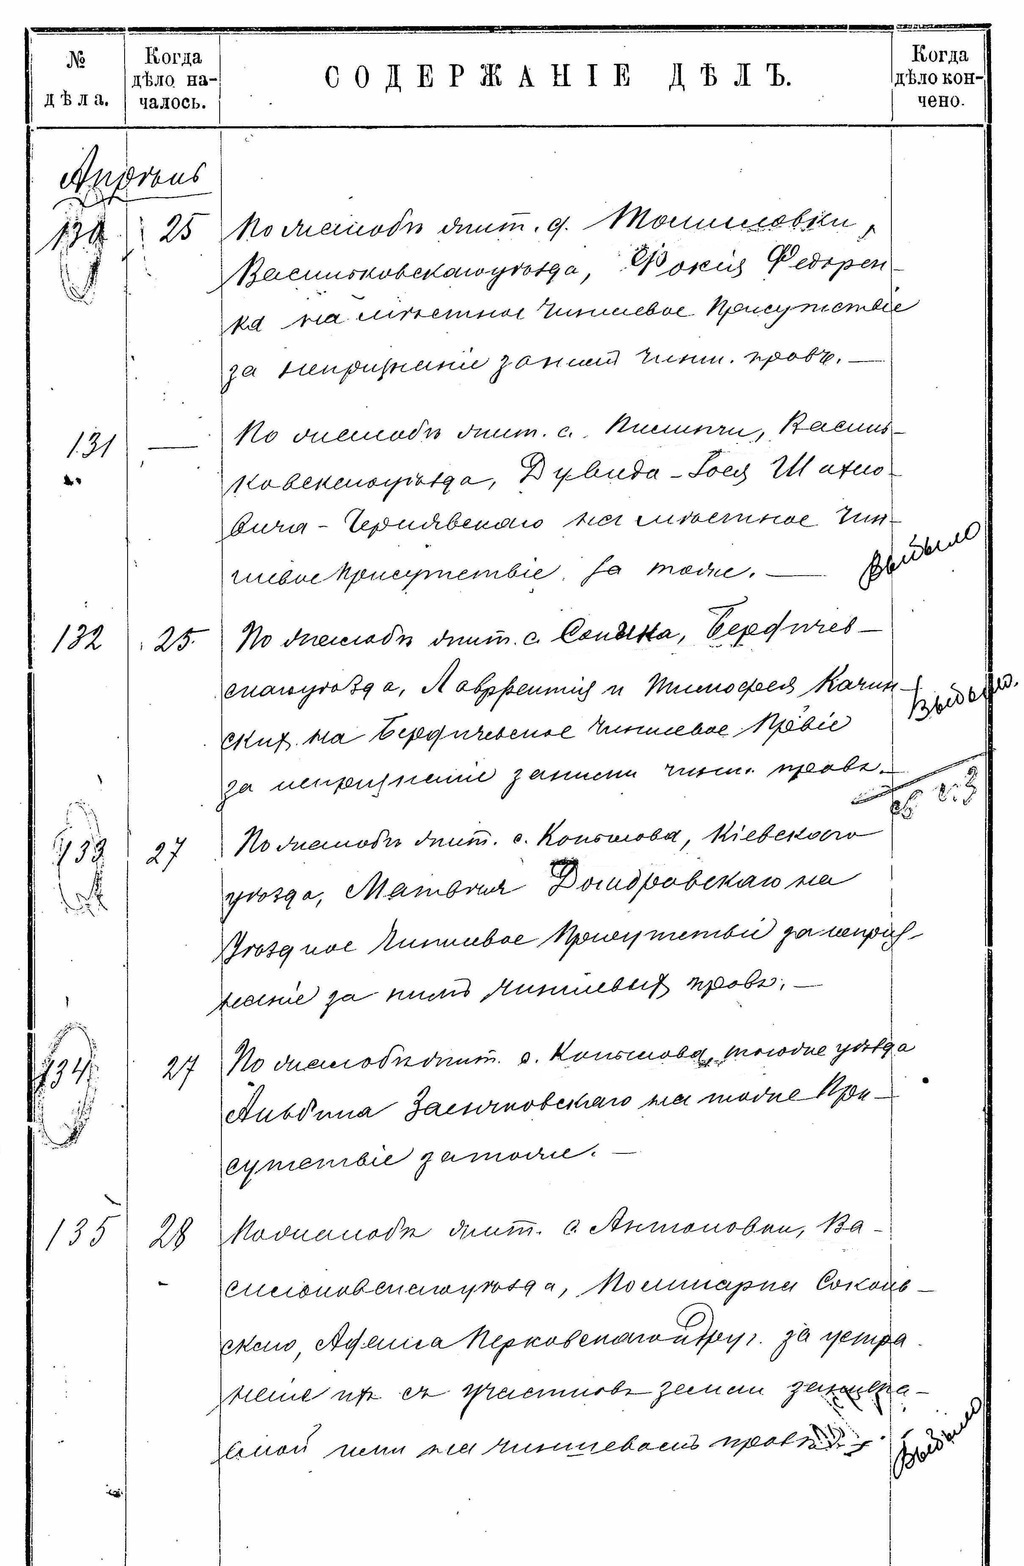 № дѣла.
Когда дѣло началось.
СОДЕРЖАНІЕ ДѢЛЪ.
Когда дѣло кончено.
Апрѣль
130 25 По жалобѣ жит. д. Томиловки,
Васильковскаго уѣзда, Фокія Федорен-
ка на мѣстное Чиншевое Присутствіе
за непризнаніе за ними чинш. правъ. —
131 — По жалобѣ жит. с. Василь-
ковскаго уѣзда, Дувида-Іося Шахно-
вича-Чернявскаго на мѣстное Чин-
шевое Присутствіе за тоже. —
Выбыло
132 25. По жалобѣ жит. с. Бердичев-
скаго уѣзда, Лаврентія и Тимофея Качин-
скихъ на Бердичевское Чиншевое Пр̃віе
за непризнаніе за ними чинш. правъ. —
Выбыло.
133 27 По жалобѣ жит. с. Копылова, Кіевскаго
уѣзда, Матвѣя Домбровскаго на
Уѣздное Чиншевое Присутствіе за неприз-
наніе за нимъ чиншевыхъ правъ. —
134 27 По жалобѣ жит. с. Копылова, того же уѣзда
Альбина на тоже При-
сутствіе за тоже. —
135 28 По жалобѣ жит. с. Антоновки, Ва-
сильковскаго уѣзда, Поликарпа Соколь-
скаго, Адама Перковскаго и друг. за устра-
неніе ихъ съ участковъ земли
ими на чиншевомъ правѣ.
Выбыло